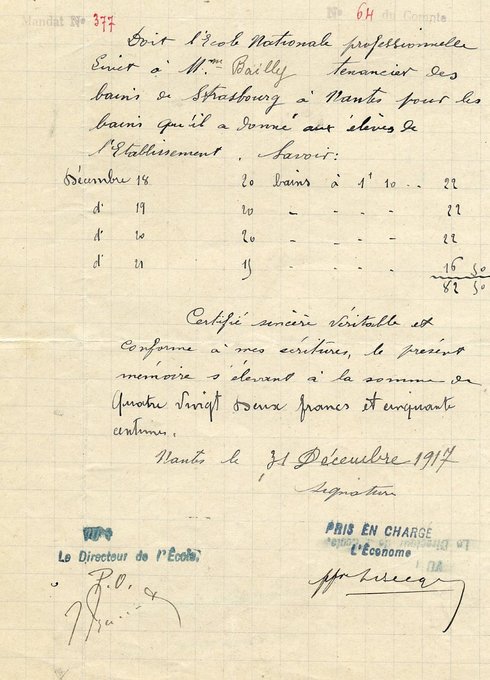 Mandat No 377
No 64 du Compte
Doit l'Ecole Nationale professionnelle
Livet à Mme Bailly tenancier des
bains de Strasbourg à Nantes pour les
bains qu'il a donné aux élèves de
l'Etablissement. Savoir:
Décembre 18 20 bains à 1f 10 .. 22
d° 19 20 - - - - 22
d° 20 20 - - - - 22
d° 21 15 - - - - 16 50
82 50
Certifié sincère véritable et
conforme à mes écritures, le présent
mémoire s'élevant à la somme de
Quatre Vingt Deux francs et cinquante
centimes.
Nantes le 31 Décembre 1917
Signature
PRIS EN CHARGE
L'Économe
VU
Le Directeur de l'École,
P.O.